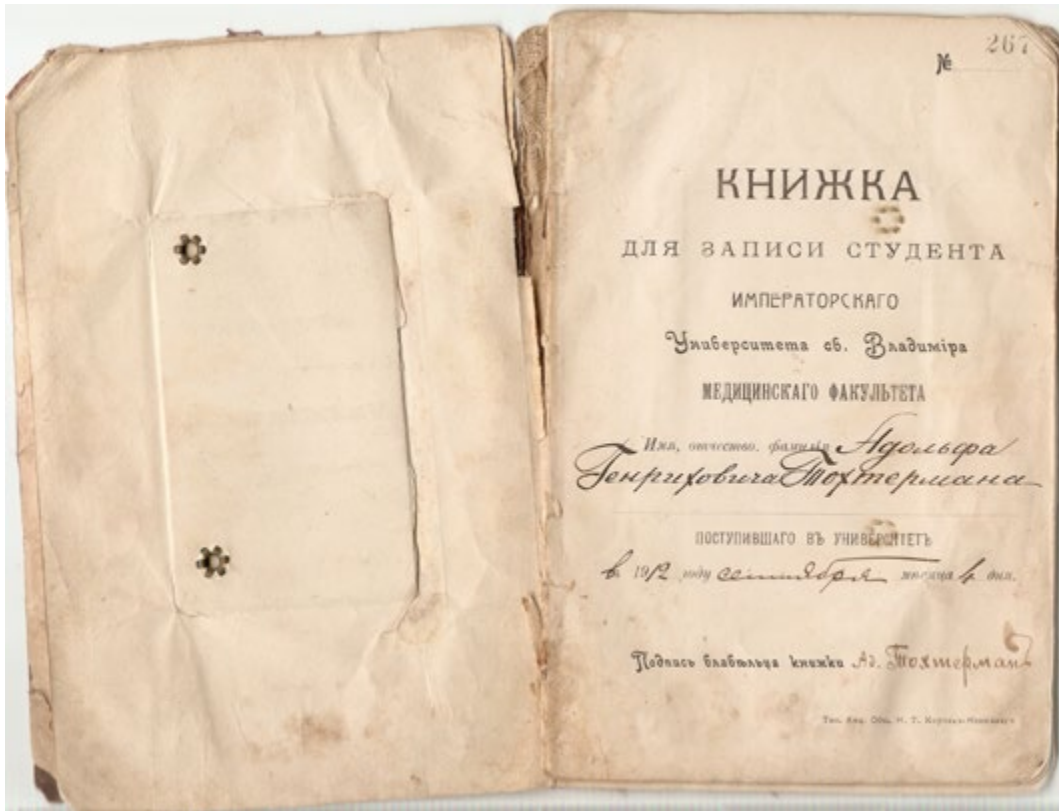 № 267
КНИЖКА
ДЛЯ ЗАПИСИ СТУДЕНТА
ИМПЕРАТОРСКАГО
Университета св. Владиміра
МЕДИЦИНСКАГО ФАКУЛЬТЕТА
Имя, отчество, фамилія Адольфа
Генриховича Тохтермана
ПОСТУПИВШАГО ВЪ УНИВЕРСИТЕТЪ
в 1912 году сентября мѣсяца 4 дня.
Подпись владѣльца книжки Ад. Тохтерманъ
Тип. Акц. Общ. Н. Т. Корчакъ-Новицкаго